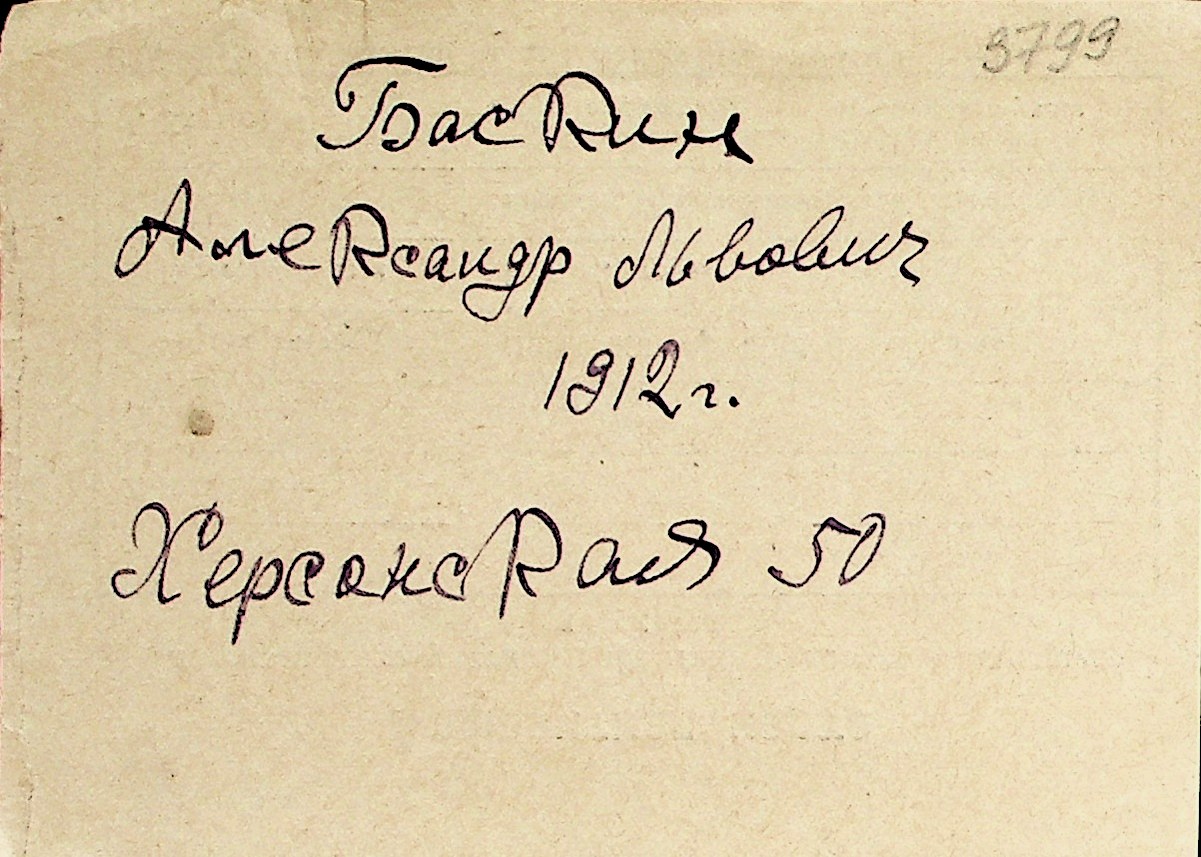 3799
Баскин
Александр Львович
1912 г.
Херсонская 50